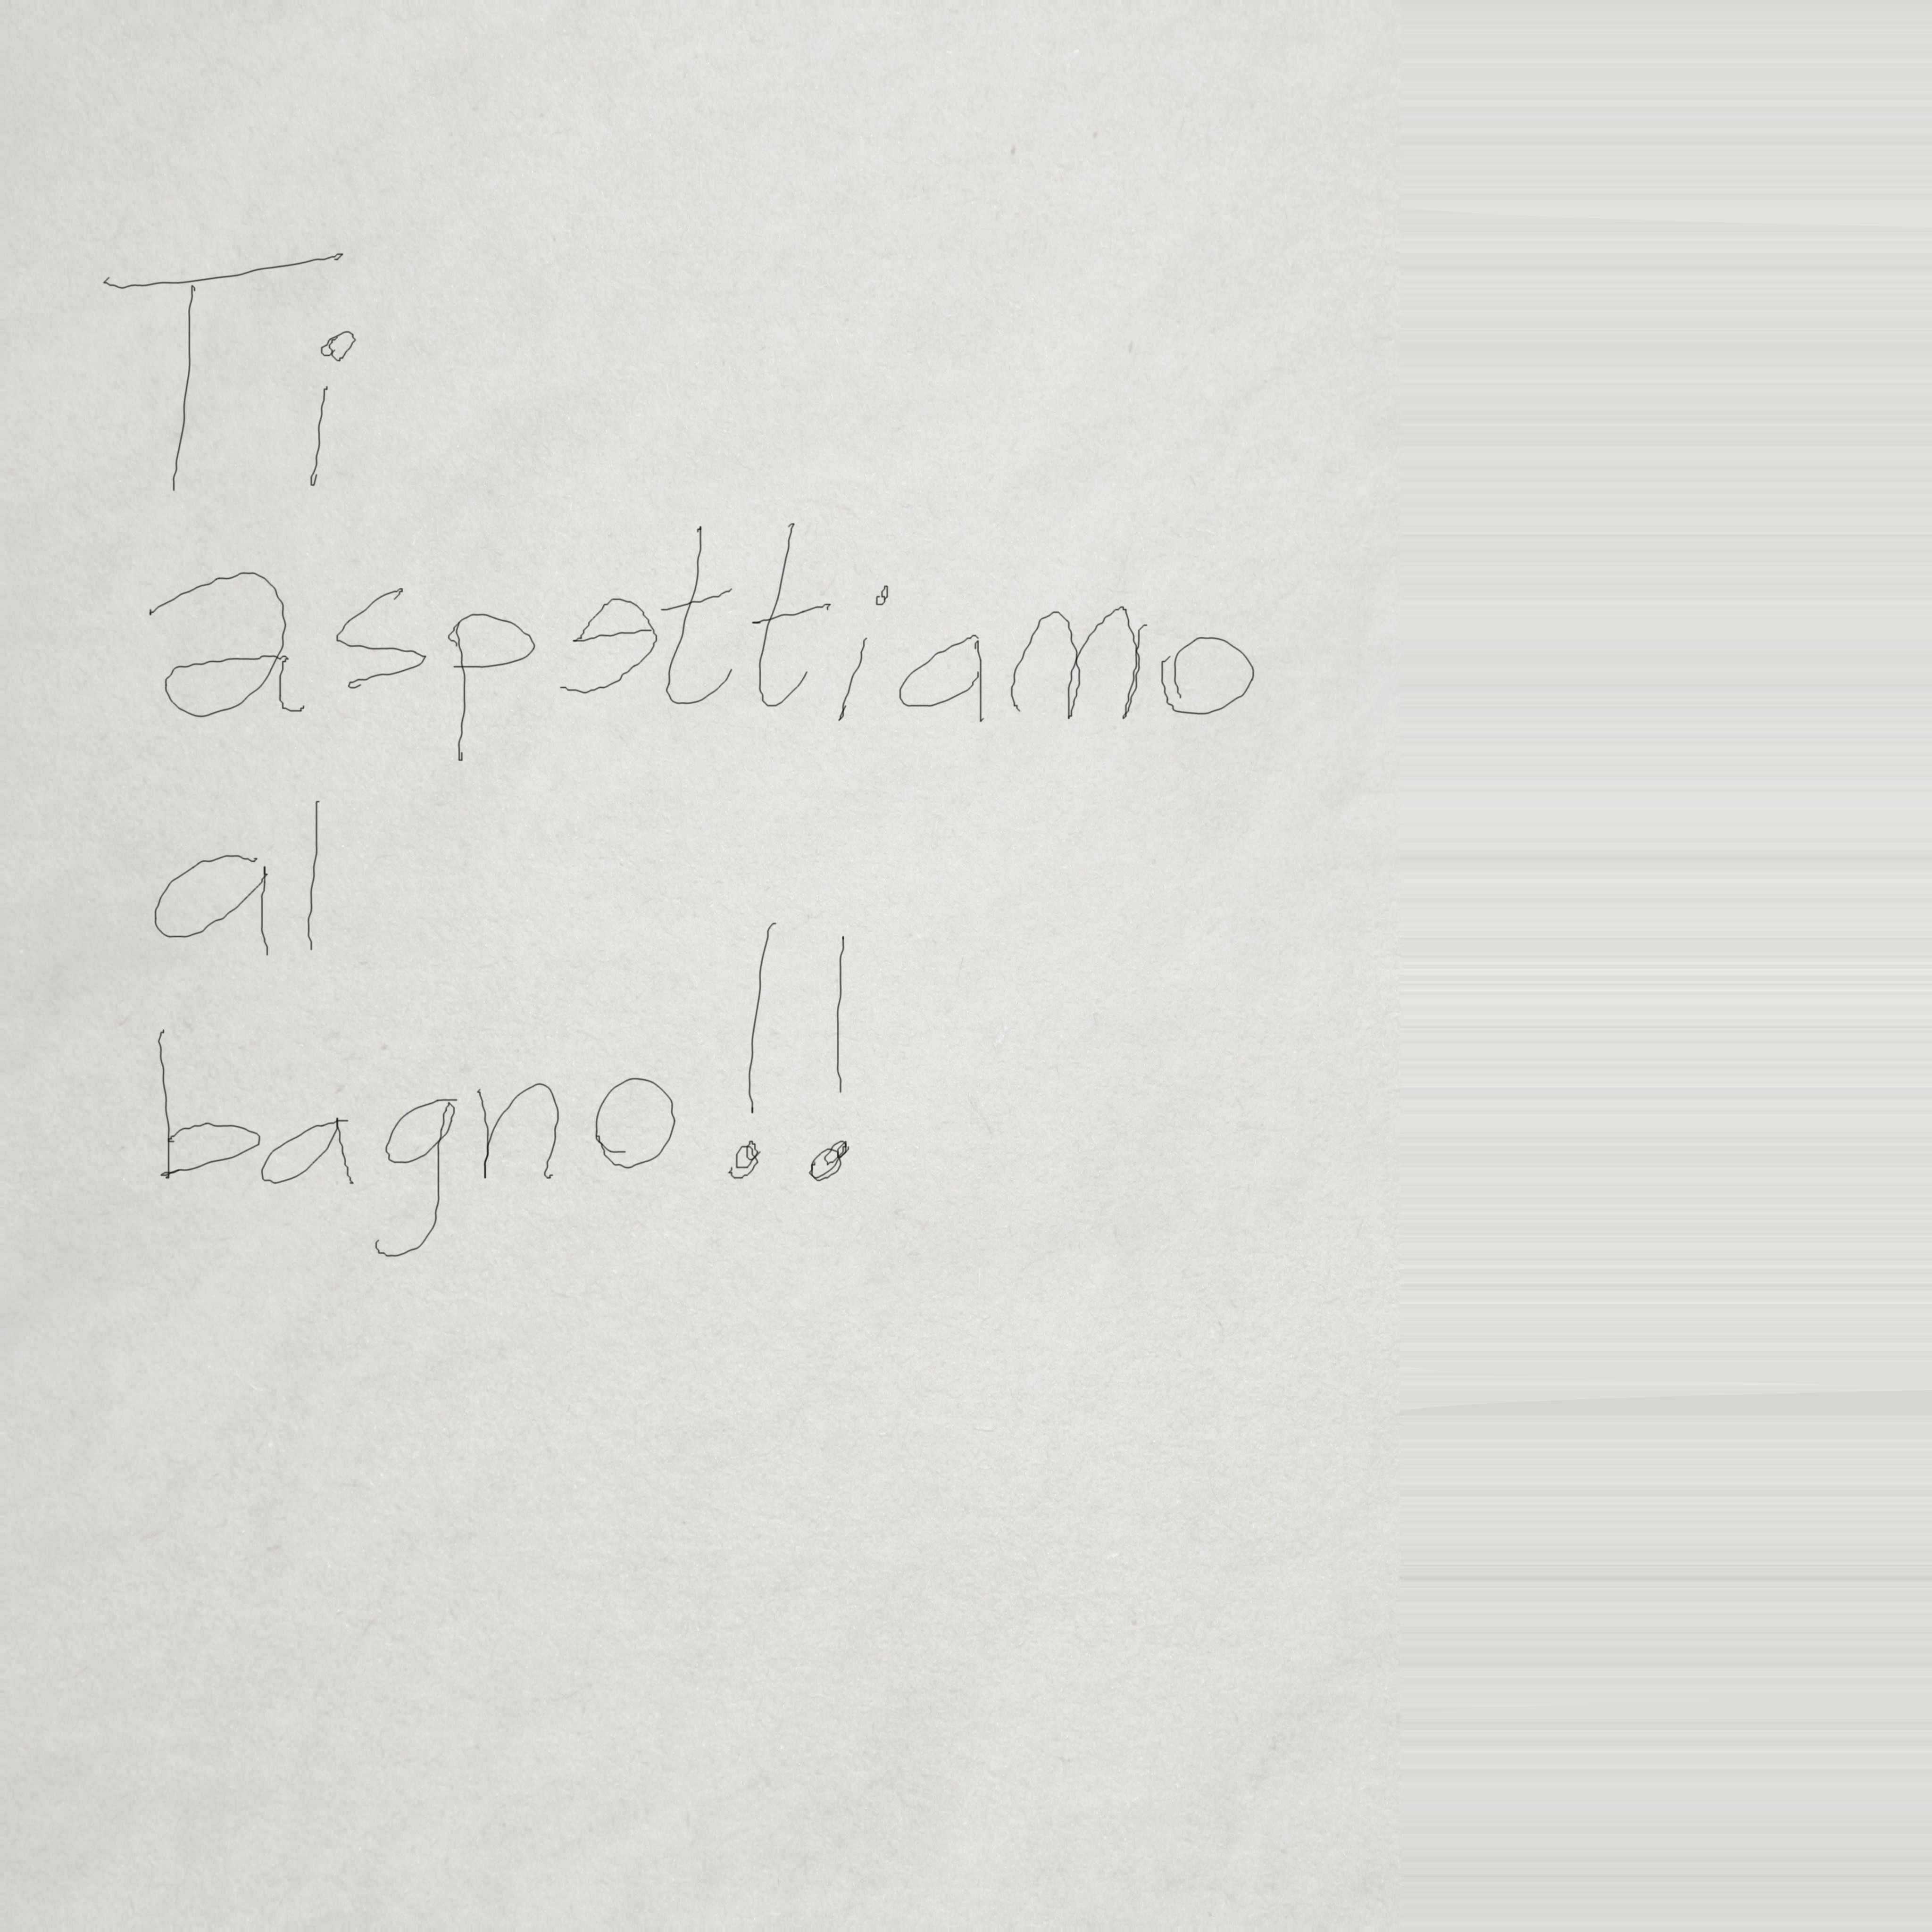 Ti
aspettiamo
al
bagno!!